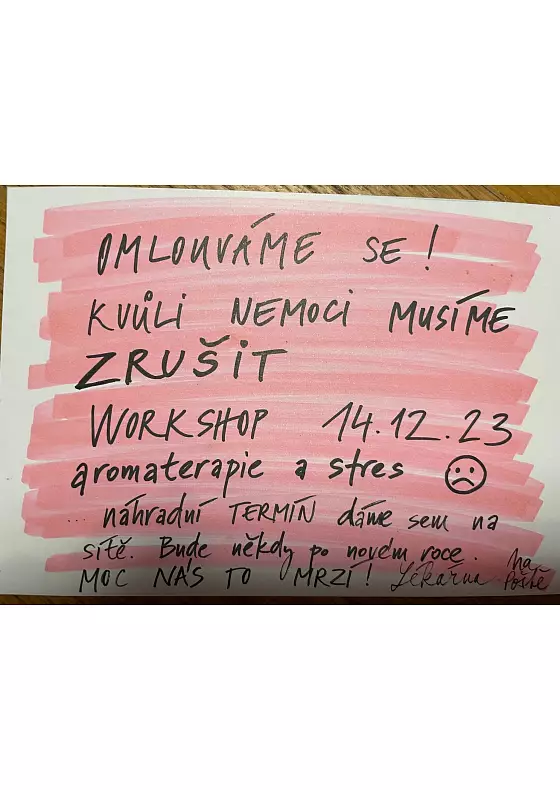 OMLOUVÁME SE!
KVŮLI NEMOCI MUSÍME
ZRUŠIT
WORKSHOP 14.12.23
aromaterapie a stres ☹
... náhradní TERMÍN dáme sem na
sítě. Bude někdy po novém roce.
MOC NÁS TO MRZÍ! Lékárna Na Poště